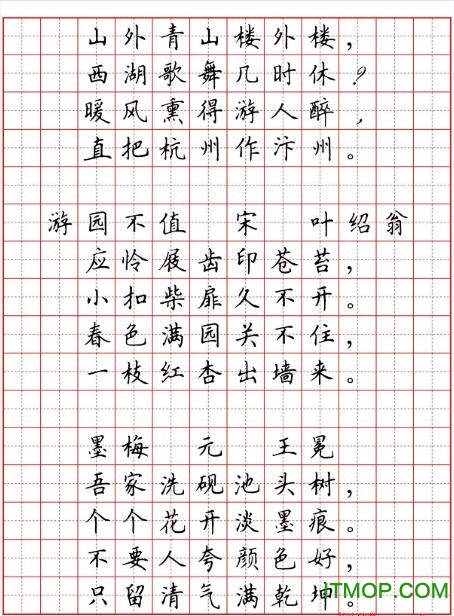 山外青山楼外楼，
西湖歌舞几时休？
暖风熏得游人醉，
直把杭州作汴州。
游园不值 宋 叶绍翁
应怜屐齿印苍苔，
小扣柴扉久不开。
春色满园关不住，
一枝红杏出墙来。
墨梅 元 王冕
吾家洗砚池头树，
个个花开淡墨痕。
不要人夸颜色好，
只留清气满乾坤。
ITMOP.COM